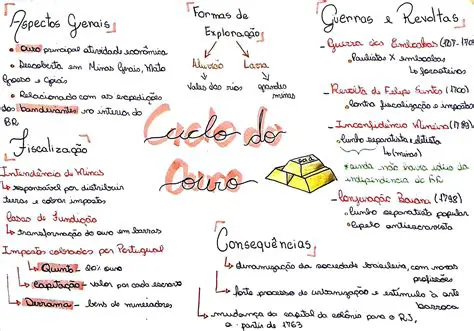 Aspectos Gerais
• ouro principal atividade econômica
• Descoberta em Minas Gerais, Mato
Grosso e Goiás
• Relacionado com as expedições
dos bandeirantes no interior do
BR
Fiscalização
Intendência de Minas
↳ responsável por distribuir
terras e cobrar impostos
Casas de Fundição
↳ transformação do ouro em barras
Impostos cobrados por Portugal
↳ Quinto - 20% ouro
↳ Capitação - valor por cada escravo
↳ Derrama - bens de mineradores
Formas de
Exploração
Aluvião Lavra
vales dos rios grandes
minas
Ciclo do
ouro
Guerras e Revoltas
- Guerra dos Emboabas
Paulistas X emboabas
↳ forasteiros
- Revolta de Felipe Santos
Contra fiscalização e impostos
- Inconfidência Mineira (1789)
• cunho separatista e elitista
↳ (minas)
* ainda não havia ideia de
independência do BR
- Conjuração Baiana (1798)
• cunho separatista popular
• caráter antiescravista
Consequências
↳ dinamização da sociedade brasileira, com novas
profissões
↳ forte processo de urbanização e estímulo à arte
barroca
↳ mudança da capital da colônia para o RJ,
a partir de 1763